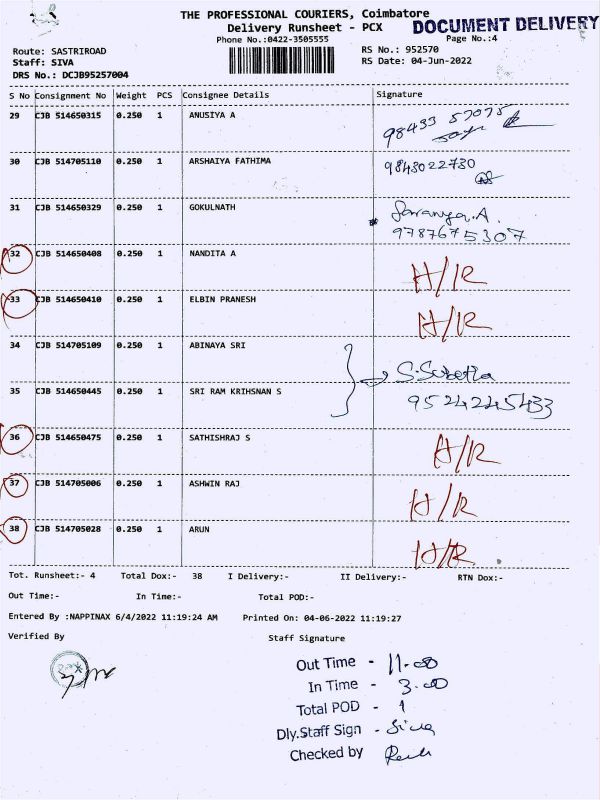 THE PROFESSIONAL COURIERS, Coimbatore
Delivery Runsheet - PCX
DOCUMENT DELIVERY
Phone No.:0422-3505555
Page No.:4
Route: SASTRIROAD
RS No.: 952570
Staff: SIVA
RS Date: 04-Jun-2022
DRS No.: DCJB95257004
S No Consignment No Weight PCS Consignee Details Signature
29 CJB 514650315 0.250 1 ANUSIYA A 98433 57075
30 CJB 514705110 0.250 1 ARSHAIYA FATHIMA 9843022730
31 CJB 514650329 0.250 1 GOKULNATH Saranya.A.
9787675307
32 CJB 514650408 0.250 1 NANDITA A H/R
33 CJB 514650410 0.250 1 ELBIN PRANESH H/R
34 CJB 514705109 0.250 1 ABINAYA SRI
35 CJB 514650445 0.250 1 SRI RAM KRIHSNAN S 95242245433
36 CJB 514650475 0.250 1 SATHISHRAJ S H/R
37 CJB 514705006 0.250 1 ASHWIN RAJ H/R
38 CJB 514705028 0.250 1 ARUN H/R
Tot. Runsheet:- 4 Total Dox:- 38 I Delivery:- II Delivery:- RTN Dox:-
Out Time:- In Time:- Total POD:-
Entered By :NAPPINAX 6/4/2022 11:19:24 AM Printed On: 04-06-2022 11:19:27
Verified By Staff Signature
Out Time - 11.00
In Time - 3.00
Total POD - 1
Dly.Staff Sign - Siva
Checked by